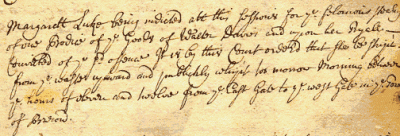 Margarett Luke being indicted att this Sessions for ye felonious stealing
of one Bodice of ye Goods of Walter Davis and upon her Tryall
Convicted of ye sd offence It is by this Court ordered that she be stript
from ye waist upward and publickly whipt for morrow Morning between
ye hours of eleven and twelve from ye East Gate to ye West Gate in ye Town
of Brecon.